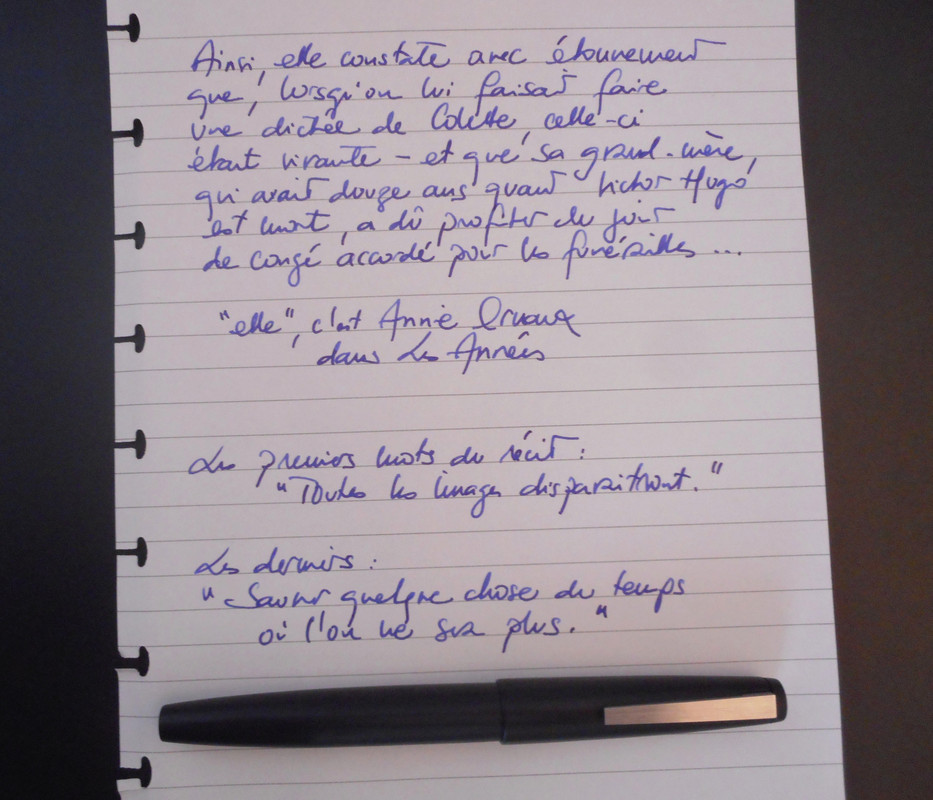 Ainsi, elle constate avec étonnement
que, lorsqu'on lui faisait faire
une dictée de Colette, celle-ci
était vivante – et que sa grand-mère,
qui avait douze ans quand Victor Hugo
est mort, a dû profiter du jour
de congé accordé pour les funérailles ...
"elle", c'est Annie Ernaux
dans Les Années
Les premiers mots du récit :
"Toutes les images disparaîtront."
Les derniers :
"Sauver quelque chose du temps
où l'on ne sera plus."